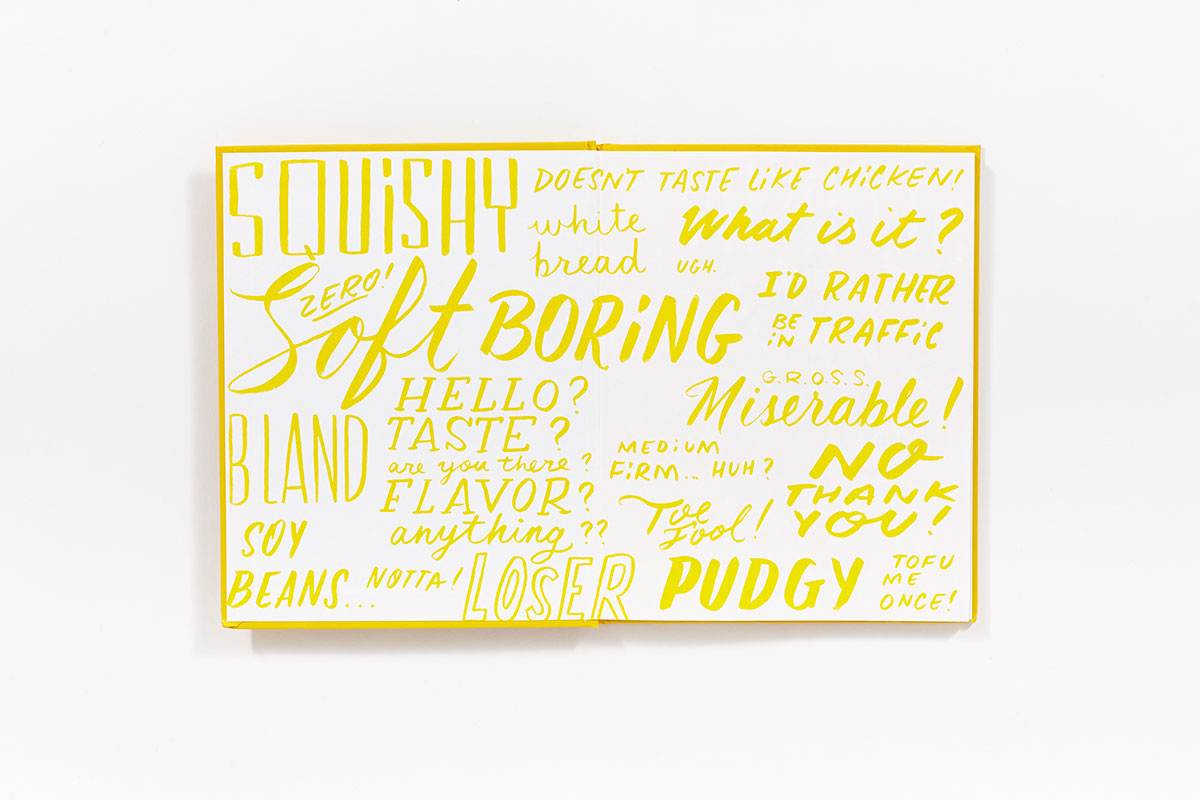 SQUiSHY
DOESNT TASTE LiKE CHiCKEN!
white
bread
What is it?
UGH.
ZERO!
Soft
BORiNG
I'D RATHER
BE
iN TRAFFiC
HELLO?
TASTE?
are you there?
FLAVOR?
anything??
G.R.O.S.S.
Miserable!
BLAND
MEDiUM
FiRM... HUH?
NO
THANK
YOU!
Toe
Fool!
SOY
BEANS...
NOTTA!
LOSER
PUDGY
TOFU
ME
ONCE!